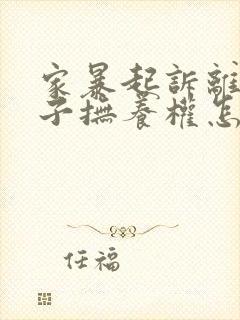 家暴起訴離
子撫養權怎
任福